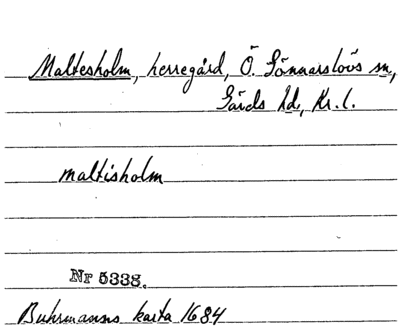 Maltesholm, herregård, Ö. Sönnarslövs sn,
Gärds hd, Kr. l.
maltisholm
Nr 5338.
Buhrmanns karta 1684